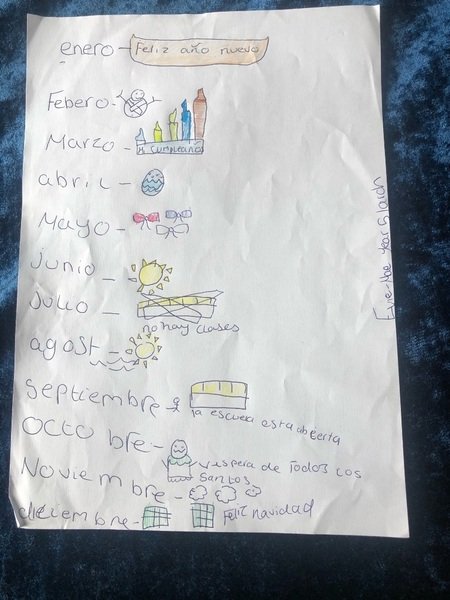 enero - Feliz año nuevo
Febero -
Marzo - Mi cumpleaños
abril -
Mayo -
junio -
Julio -
no hay clases
agost -
septiembre
la escuela esta abierta
octobre -
vispera de Todos los
Santos
Noviembre -
diciembre - Feliz navidad
Evie-Mae Year